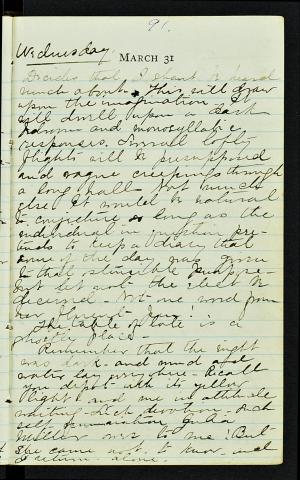 91.
Wednesday.
MARCH 31
Decides that I shan't be heard
much about. This will draw
upon the imagination. It
will dwell upon a dark
and monosyllabic
responses. Small lofty
flights will be presupposed
and vague creepings through
a long hall. Not much
else. It would be natural
to conjecture so long as the
individual in question pre-
tends to keep a diary that
some of the day was given
to that
not let not the elect be
deceived. Not one word from
her
The table of late is a
ghostly place.
Remember that the night
was dark and mud and
water lay everywhere. Recall
you depot with its yellow
light and me in attitude
waiting. Such devotion. Such
self
over to me! But
she came not, to know, and
I return alone.